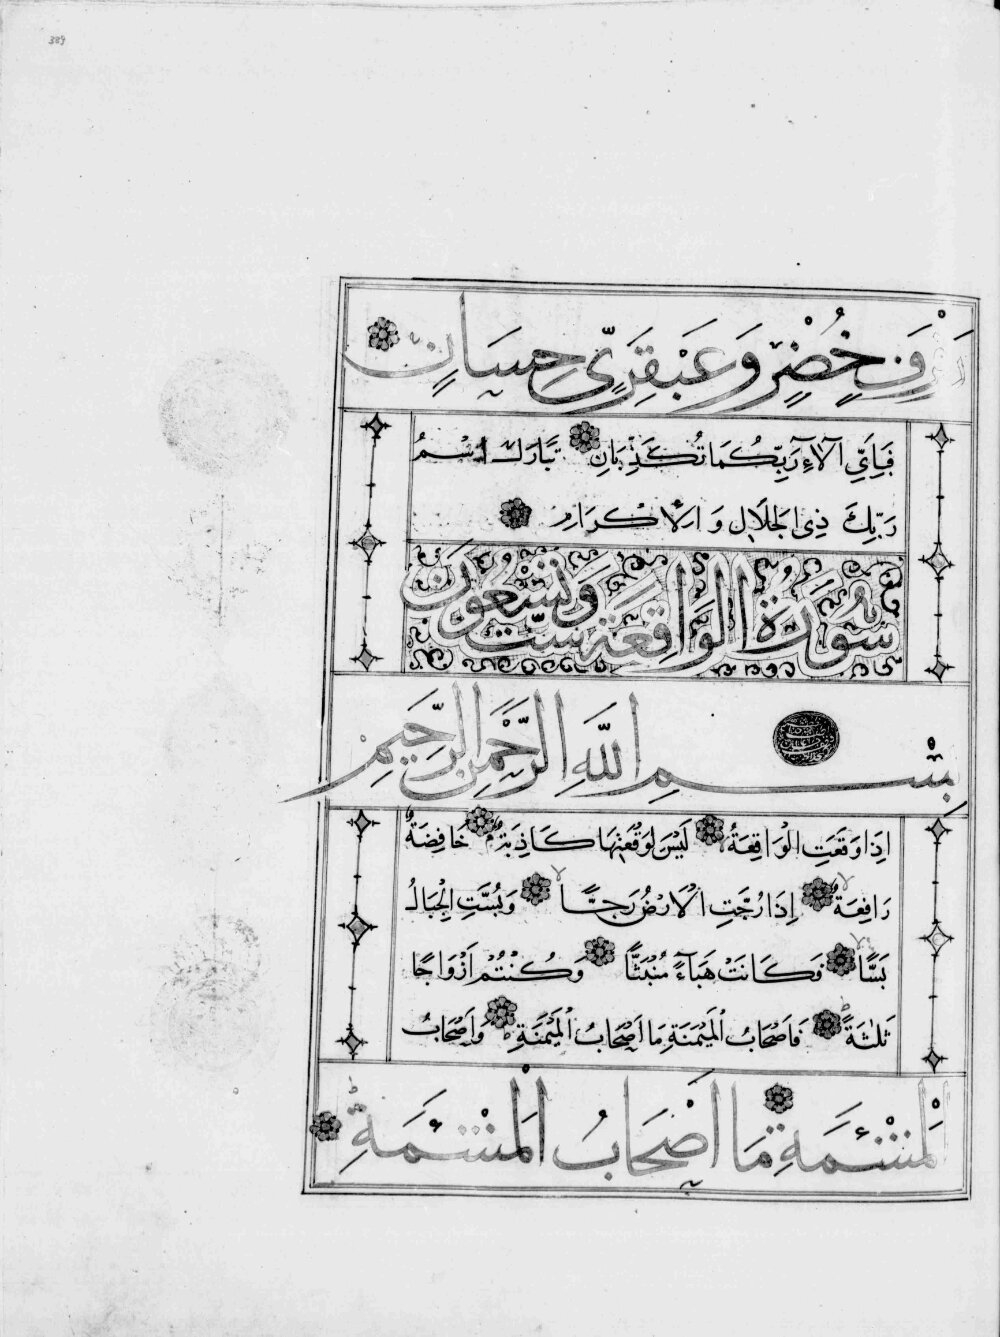 389
رَفٍ خُضْرٍ وَعَبْقَرِيٍّ حِسَانٍ
فَبِأَيِّ آلَاءِ رَبِّكُمَا تُكَذِّبَانِ تَبَارَكَ اسْمُ
رَبِّكَ ذِي الْجَلَالِ وَالْإِكْرَامِ
سُورَةُ الْوَاقِعَةِ سِتٌّ وَتِسْعُونَ
بِسْمِ اللَّهِ الرَّحْمَنِ الرَّحِيمِ
إِذَا وَقَعَتِ الْوَاقِعَةُ لَيْسَ لِوَقْعَتِهَا كَاذِبَةٌ خَافِضَةٌ
رَافِعَةٌ إِذَا رُجَّتِ الْأَرْضُ رَجًّا وَبُسَّتِ الْجِبَالُ
بَسًّا فَكَانَتْ هَبَاءً مُنْبَثًّا وَكُنْتُمْ أَزْوَاجًا
ثَلَاثَةً فَأَصْحَابُ الْمَيْمَنَةِ مَا أَصْحَابُ الْمَيْمَنَةِ وَأَصْحَابُ
الْمَشْئَمَةِ مَا أَصْحَابُ الْمَشْئَمَةِ